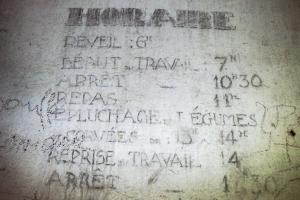 HORAIRE
RÉVEIL : 6H
DÉBUT TRAVAIL : 7H
ARRÊT 10H30
REPAS 11H
EPLUCHAGE LÉGUMES
CORVÉES 13H 14H
REPRISE TRAVAIL 14
ARRÊT 30